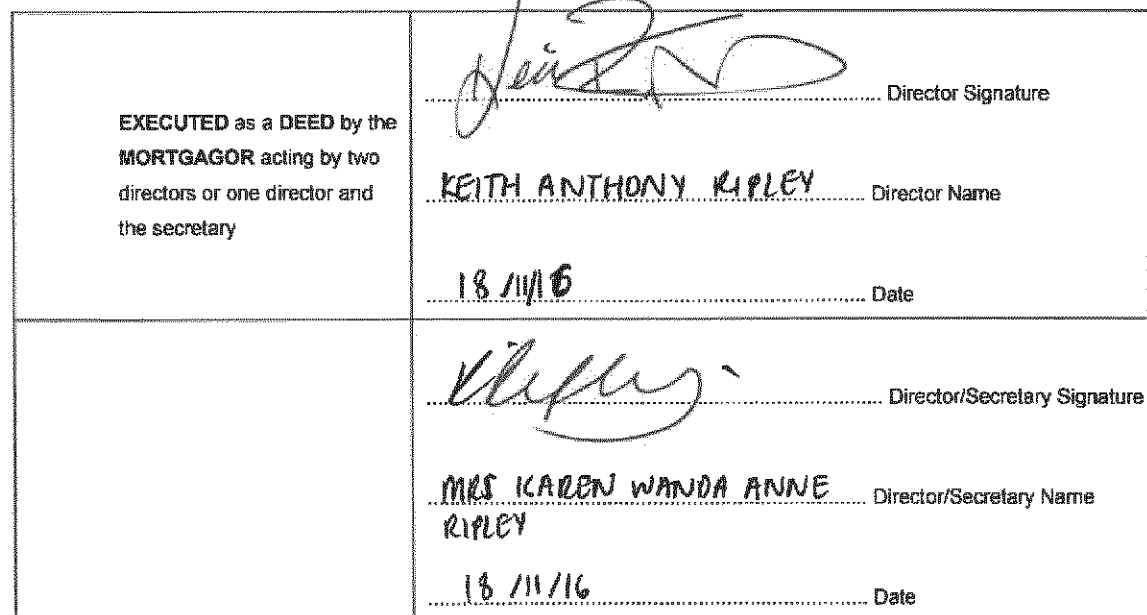 EXECUTED as a DEED by the
MORTGAGOR acting by two
directors or one director and
the secretary
Director Signature
KEITH ANTHONY RIPLEY Director Name
18/11/16 Date
KRipley Director/Secretary Signature
MRS KAREN WANDA ANNE Director/Secretary Name
RIPLEY
18/11/16 Date